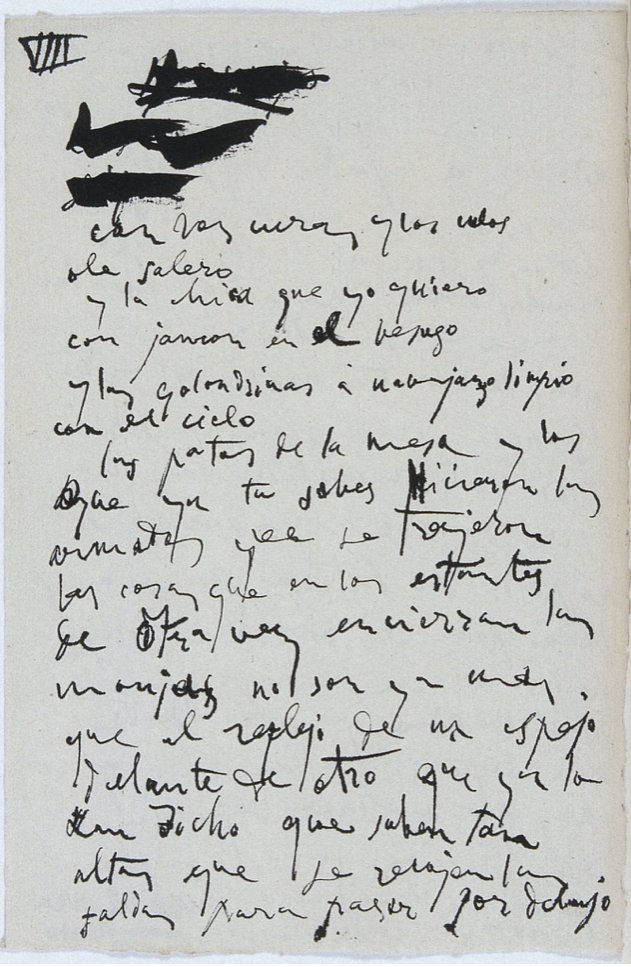 VIIII
con las uvas y los
ole salero
y la chica que yo quiero
con jamon en el besugo
y las golondrinas a navajazo limpio
con el cielo
las patas de la mesa y los
que ya tu sabes hicieron las
que se trajeron
las cosas que en los estantes
de otra vez encierran las
monjas no son ya mas
que el reflejo de un espejo
delante de otro que ya lo
han dicho que suben tan
altas que se recojen las
faldas para pasar por debajo